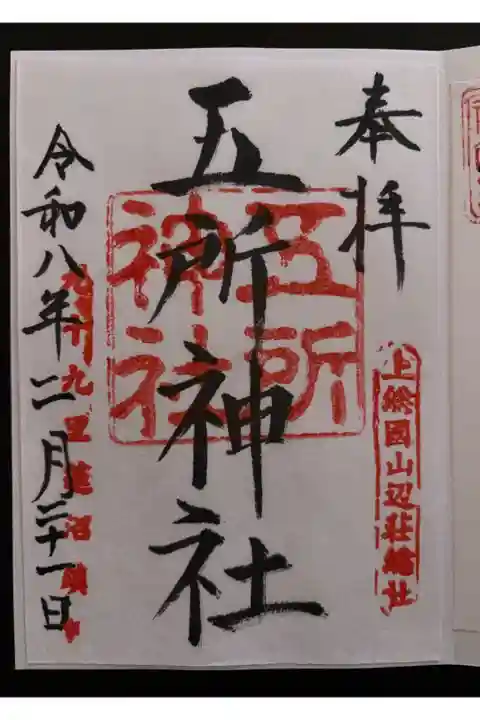 奉拝
上総国山辺荘総社
五所神社
五所神社
令和八年二月二十一日
九十九里蓮沼